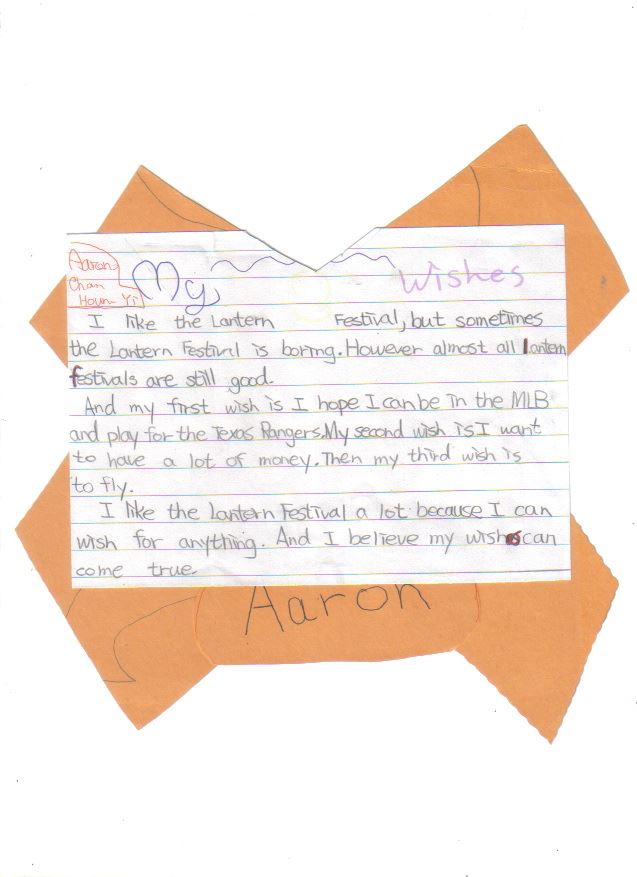 Aaron
Chan
Houn-Yi
My Wishes
I like the Lantern Festival, but sometimes
the Lantern Festival is boring. However almost all lantern
festivals are still good.
And my first wish is I hope I can be in the MLB
and play for the Texas Rangers. My second wish is I want
to have a lot of money. Then my third wish is
to fly.
I like the Lantern Festival a lot because I can
wish for anything. And I believe my wishes can
come true.
Aaron